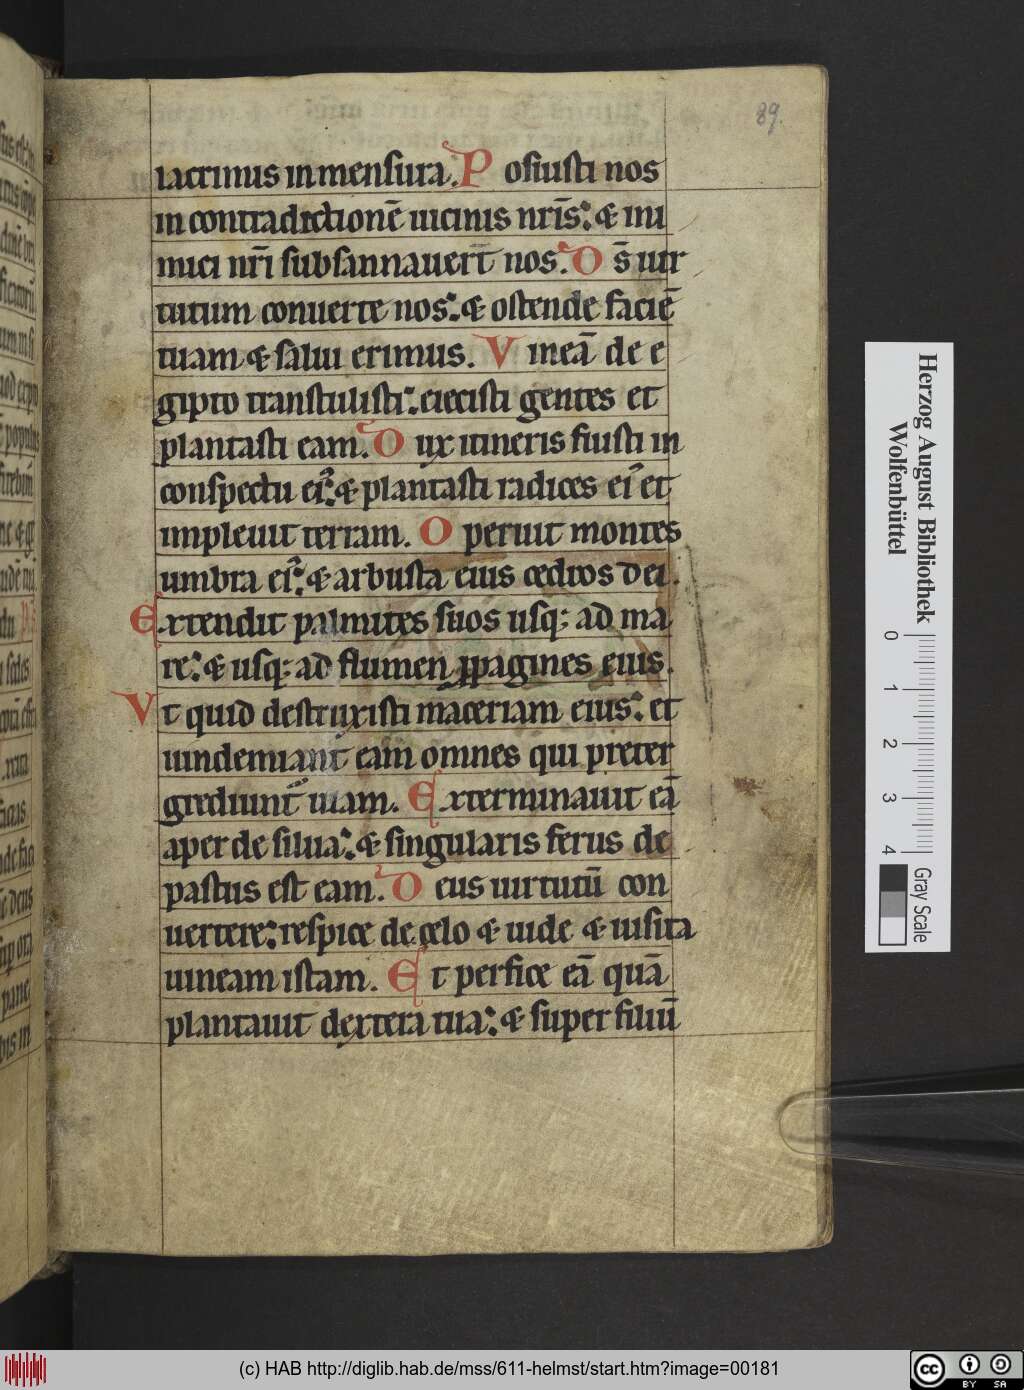 89.
lacrimis in mensura. Posuisti nos
in contradictionē uicinis nr̄is: & ini
mici nr̄i subsannauert̄ nos. Ds̄ uir
tutum conuerte nos: & ostende faciē
tuam & salui erimus. Vineā de e
gipto transtulisti: eiecisti gentes et
plantasti eam. Dux itineris fuisti in
conspectu ei᷒: & plantasti radices ei᷒ et
impleuit terram. Operuit montes
umbra ei᷒: & arbusta eius cedros dei.
Extendit palmites suos usq; ad ma
re: & usq; ad flumen ꝓpagines eius.
Vt quid destruxisti maceriam eius: et
uindemiant eam omnes qui preter
grediunt᷑ uiam. Exterminauit eā
aper de silua: & singularis ferus de
pastus est eam. Deus uirtutū con
uertere: respice de celo & uide & uisita
uineam istam. Et perfice eā quā
plantauit dextera tua: & super filiū
Herzog August Bibliothek
Wolfenbüttel
0 1 2 3 4
Gray Scale
(c) HAB http://diglib.hab.de/mss/611-helmst/start.htm?image=00181
cc BY SA